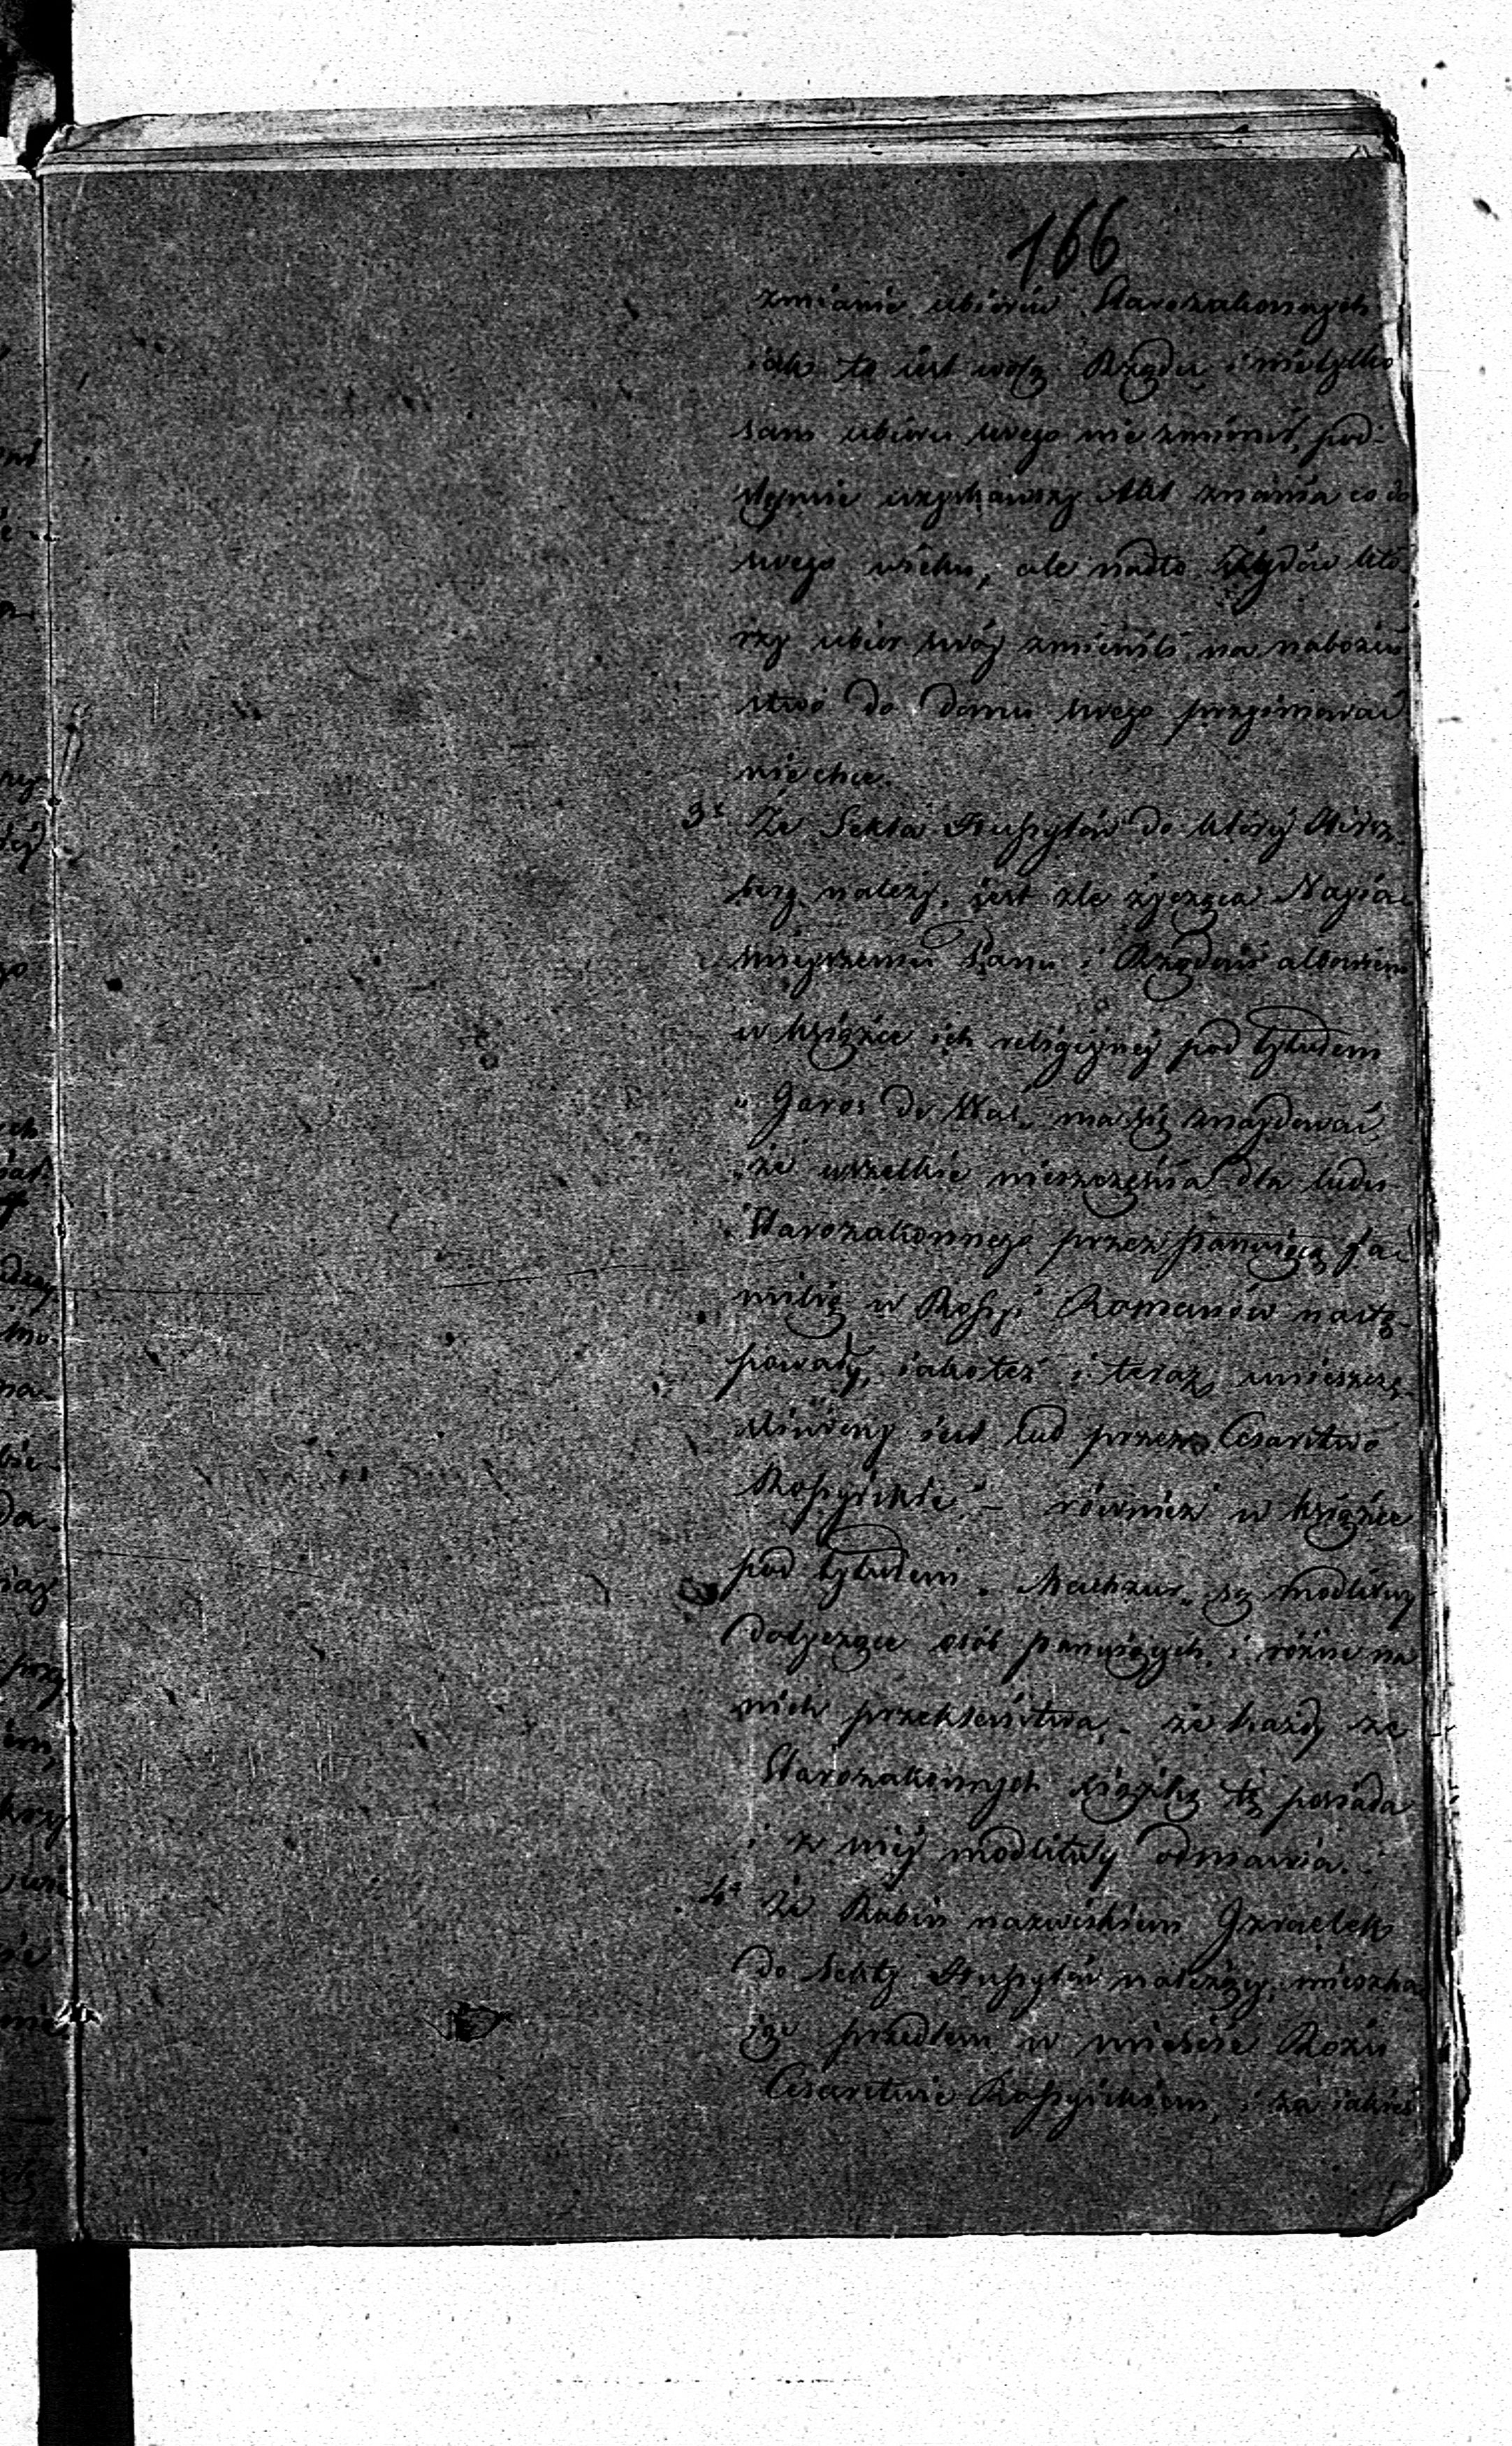 166
zmianie ubioru Starozakonnych
iak to iest wolą Rządu i nietylko
sam ubioru swego nie zmienił, pod-
stępnie uzyskawszy Akt znania co do
swego wieku, ale nadto Żydów któ-
rzy ubiór swój zmienili na nabożeń
stwo do domu swego przyimować
nie chce.
3e Że Sekta Hussytów do któréj
berg należy, iest źle życząca Nayia-
śnieyszemu Panu i Rządowi albowiem
w książce ich religiynéj pod tytułem
„Jaros de Wat„ ma się znaydować,
„że wszelkie nieszczęścia dla ludu
Starozakonnego przez panuiącą fa-
milią w Rossyi Romanów nastę-
powały, iakoteż i teraz unieszczę-
śliwiony iest lud przez Cesarstwo
Rossyiskie" – również w książce
pod tytułem „Machzur„ są modlitwy
dotyczące osób panuiących, i różne na
nich przekleństwa, – że każdy ze
Starozakonnych książkę tę posiada
i z niéj modlitwy odmawia.
4e Że Rabin nazwiskiem Izraelek
do Sekty Hussytów należący, mieszka
iąc przedtem w mieście
Cesarstwie Rossyiskiem, i za iakieś